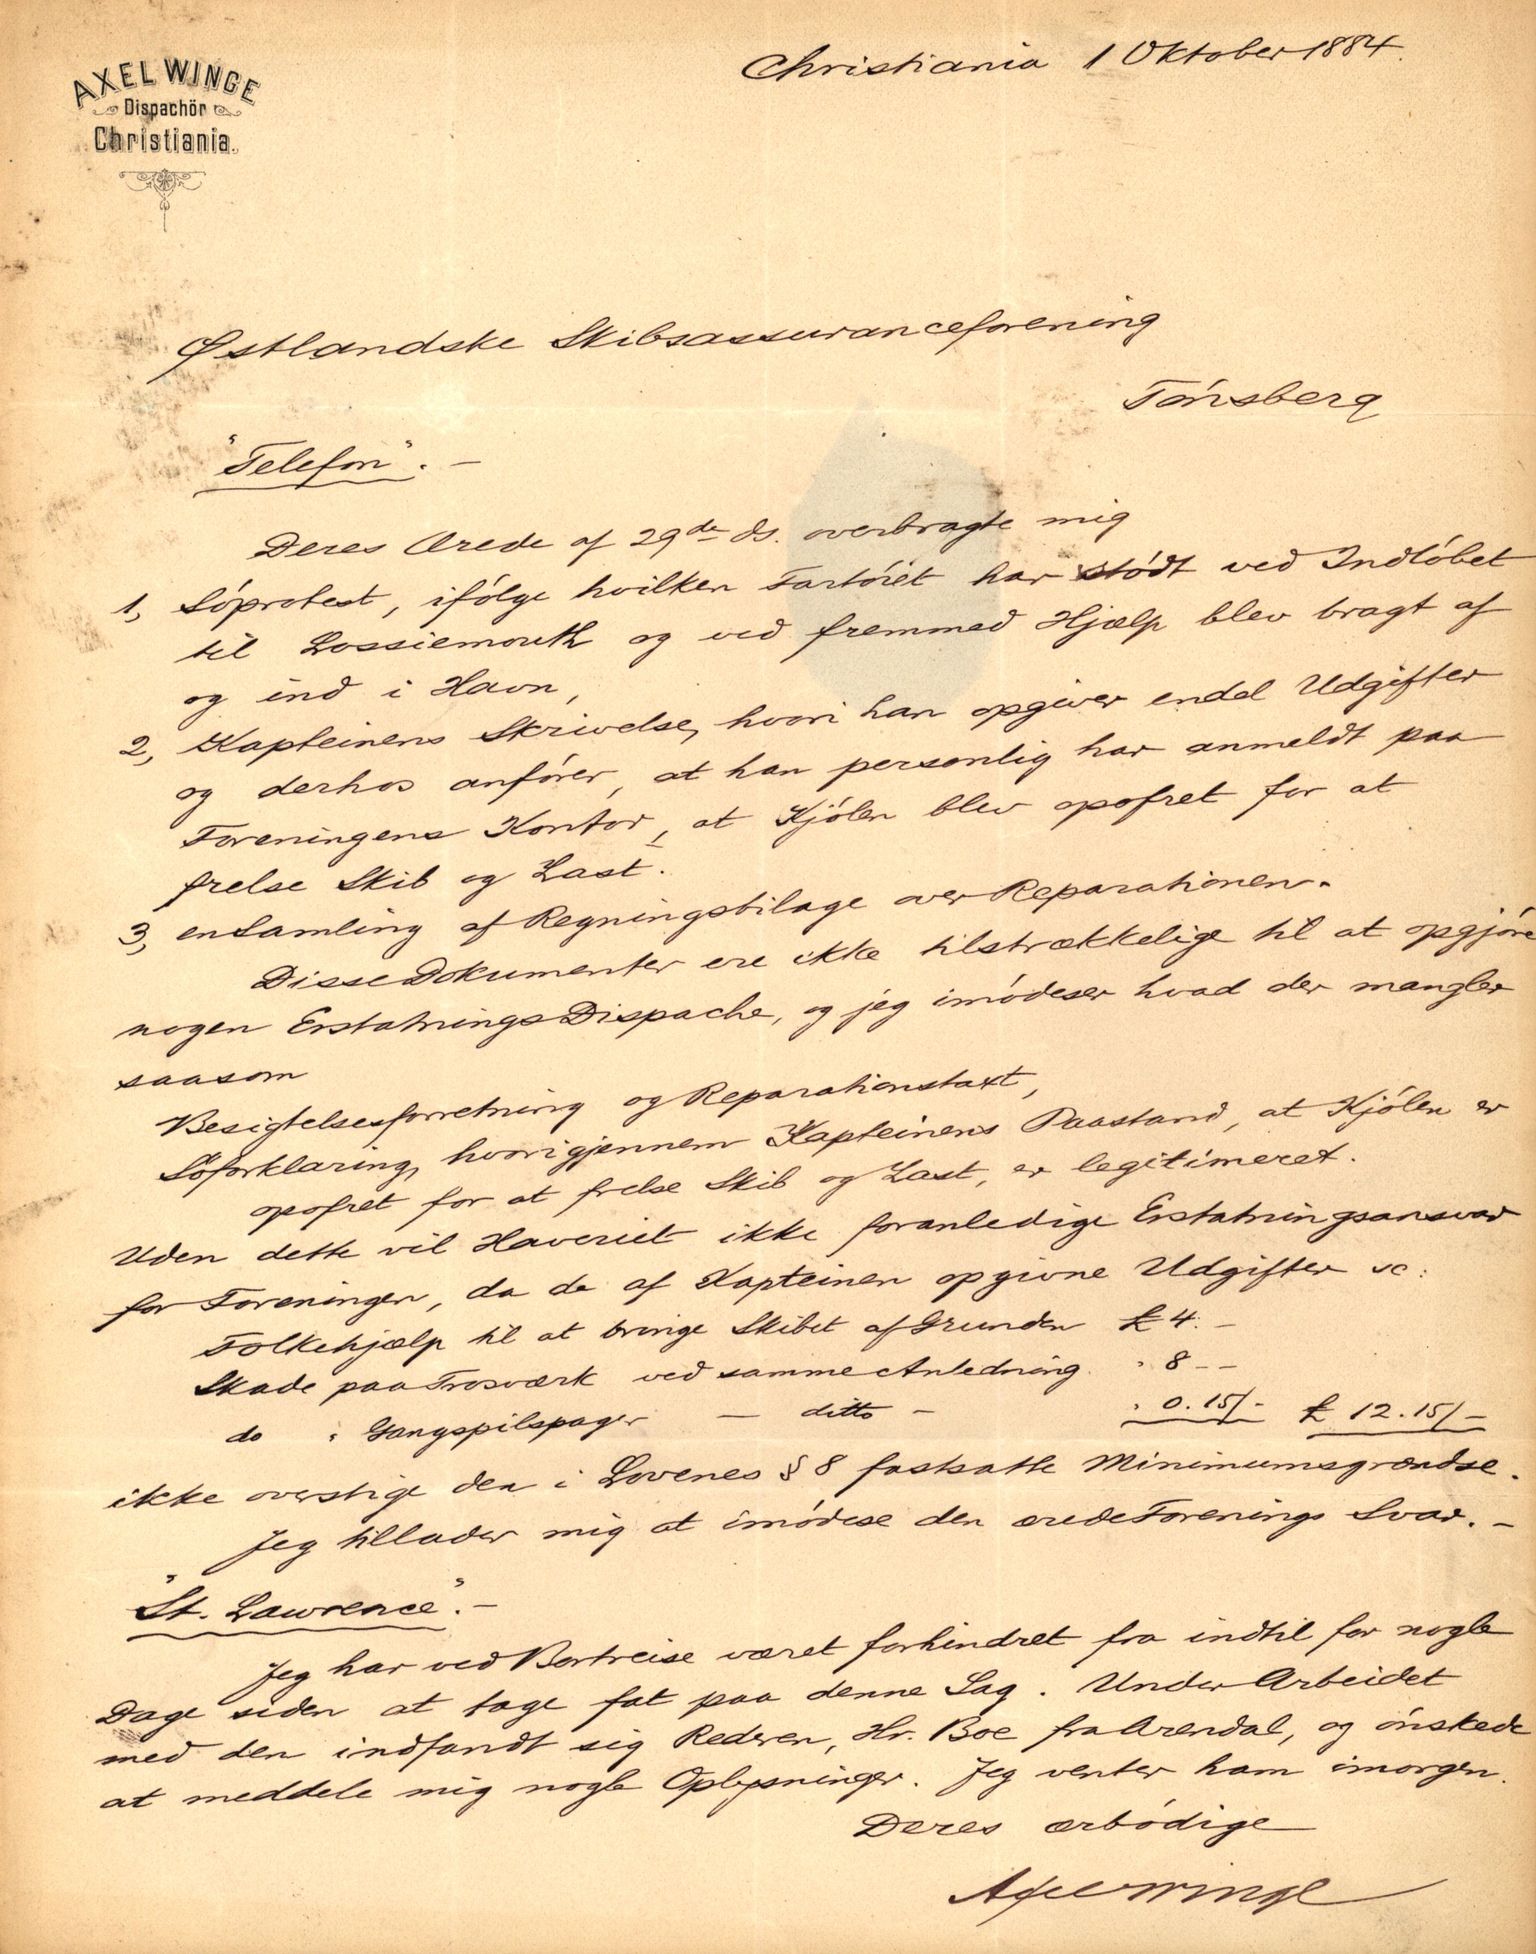 AXEL WINGE
Dispachör
Christiania.
Christiania 1 Oktober 1884.
Østlandske Skibsassuranceforening
Tónsberg
"Telefon". —
Deres Ærede af 29de ds. overbragte mig
1, Sóprotest, ifólge hvilken Fartóiet har stódt ved Indlóbet
til Lossiemouth og ved fremmed Hjælp blev bragt af
og ind i Havn,
2, Kapteinens Skrivelse, hvori han opgiver endel Udgifter
og derhos anfórer, at han personlig har anmeldt paa
Foreningens Kontor, at Kjólen blev opofret for at
frelse Skib og Last.
3, en Samling af Regningsbilage over Reparationen.
Disse Dokumenter ere ikke tilstrækkelige til at opgjóre
nogen Erstatnings Dispache, og jeg imódeser hvad der mangler
saasom
Besigtelsesforretning og Reparationstaxt,
Sóforklaring, hvorigjennem Kapteinens Paastand, at Kjólen er
opofret for at frelse Skib og Last, er legitimeret.
Uden dette vil Haveriet ikke foranledige Erstatningsansvar
for Foreningen, da de af Kapteinen opgivne Udgifter sc:
Folkehjælp til at bringe Skibet af Grunden £ 4. —
Skade paa Trosværk ved samme Anledning " 8 - -
do " Gangspilspager — ditto — " 0.15/- £ 12.15/-
ikke overstige den i Lovenes § 8 fastsatte Minimumsgrændse.
Jeg tillader mig at imódese den ærede Forenings Svar. —
"St. Lawrence". —
Jeg har ved Bortreise været forhindret fra indtil for nogle
Dage siden at tage fat paa denne Sag. Under Arbeidet
med den indfandt sig Rederen, Hr. Boe fra Arendal, og ónskede
at meddele mig nogle Oplysninger. Jeg venter ham imorgen.
Deres ærbódige
Axel Winge